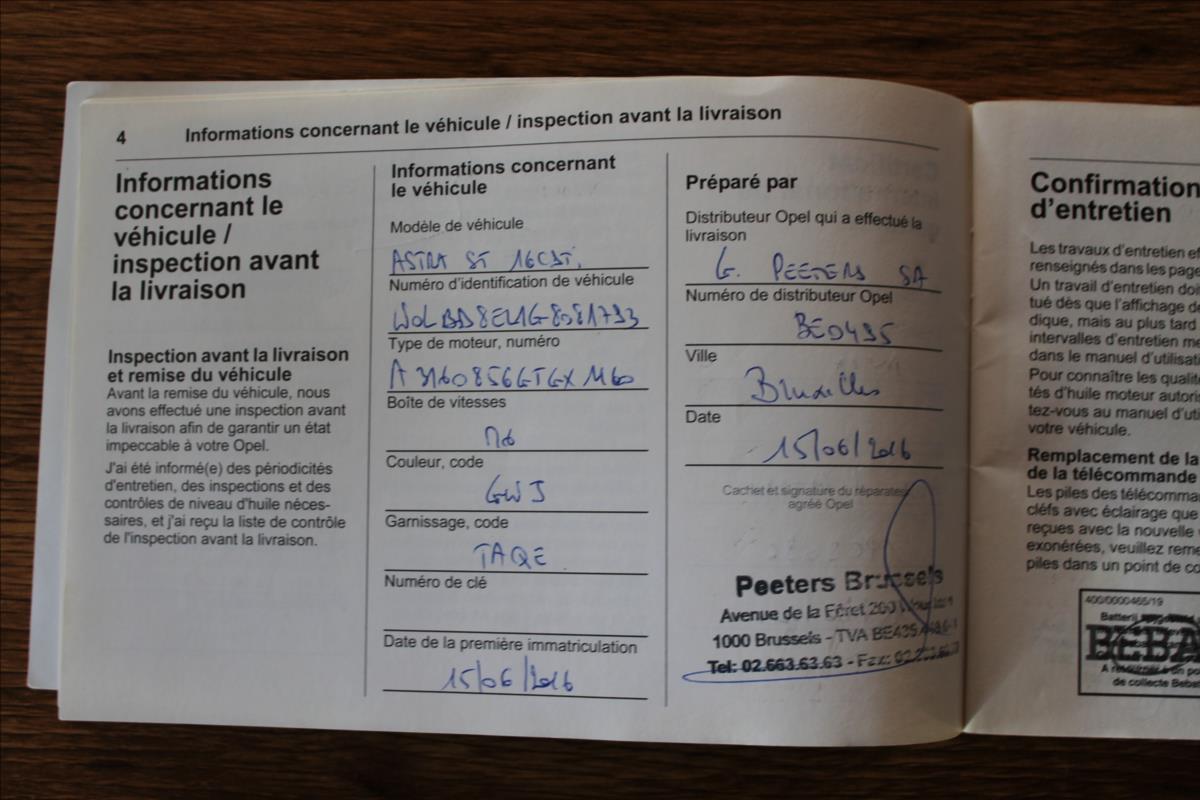 4
Informations concernant le véhicule / inspection avant la livraison
Informations
concernant le
véhicule /
inspection avant
la livraison
Inspection avant la livraison
et remise du véhicule
Avant la remise du véhicule, nous
avons effectué une inspection avant
la livraison afin de garantir un état
impeccable à votre Opel.
J'ai été informé(e) des périodicités
d'entretien, des inspections et des
contrôles de niveau d'huile néces-
saires, et j'ai reçu la liste de contrôle
de l'inspection avant la livraison.
Informations concernant
le véhicule
Modèle de véhicule
ASTRA ST
Numéro d'identification de véhicule
Type de moteur, numéro
Boîte de vitesses
M6
Couleur, code
GWJ
Garnissage, code
TAQE
Numéro de clé
Date de la première immatriculation
15/06/2016
Préparé par
Distributeur Opel qui a effectué la
livraison
G. PEETERS SA
Numéro de distributeur Opel
BE0495
Ville
Bruxelles
Date
15/06/2016
Cachet et signature du réparateur
agréé Opel
Peeters Brussels
Avenue de la Fêret 200
1000 Brussels - TVA
Tel: 02.663.63.63 - Fax:
Confirmation
d'entretien
Les travaux d'entretien
renseignés dans les
Un travail d'entretien
tué dès que l'affichage
dique, mais au plus tard
intervalles d'entretien
dans le manuel
Pour connaître les
tés d'huile moteur
tez-vous au manuel
votre véhicule.
Remplacement de la
de la télécommande
Les piles des
cléfs avec éclairage que
reçues avec la nouvelle
exonérées, veuillez
piles dans un point de
400/0000465/19
BEBA
de collecte